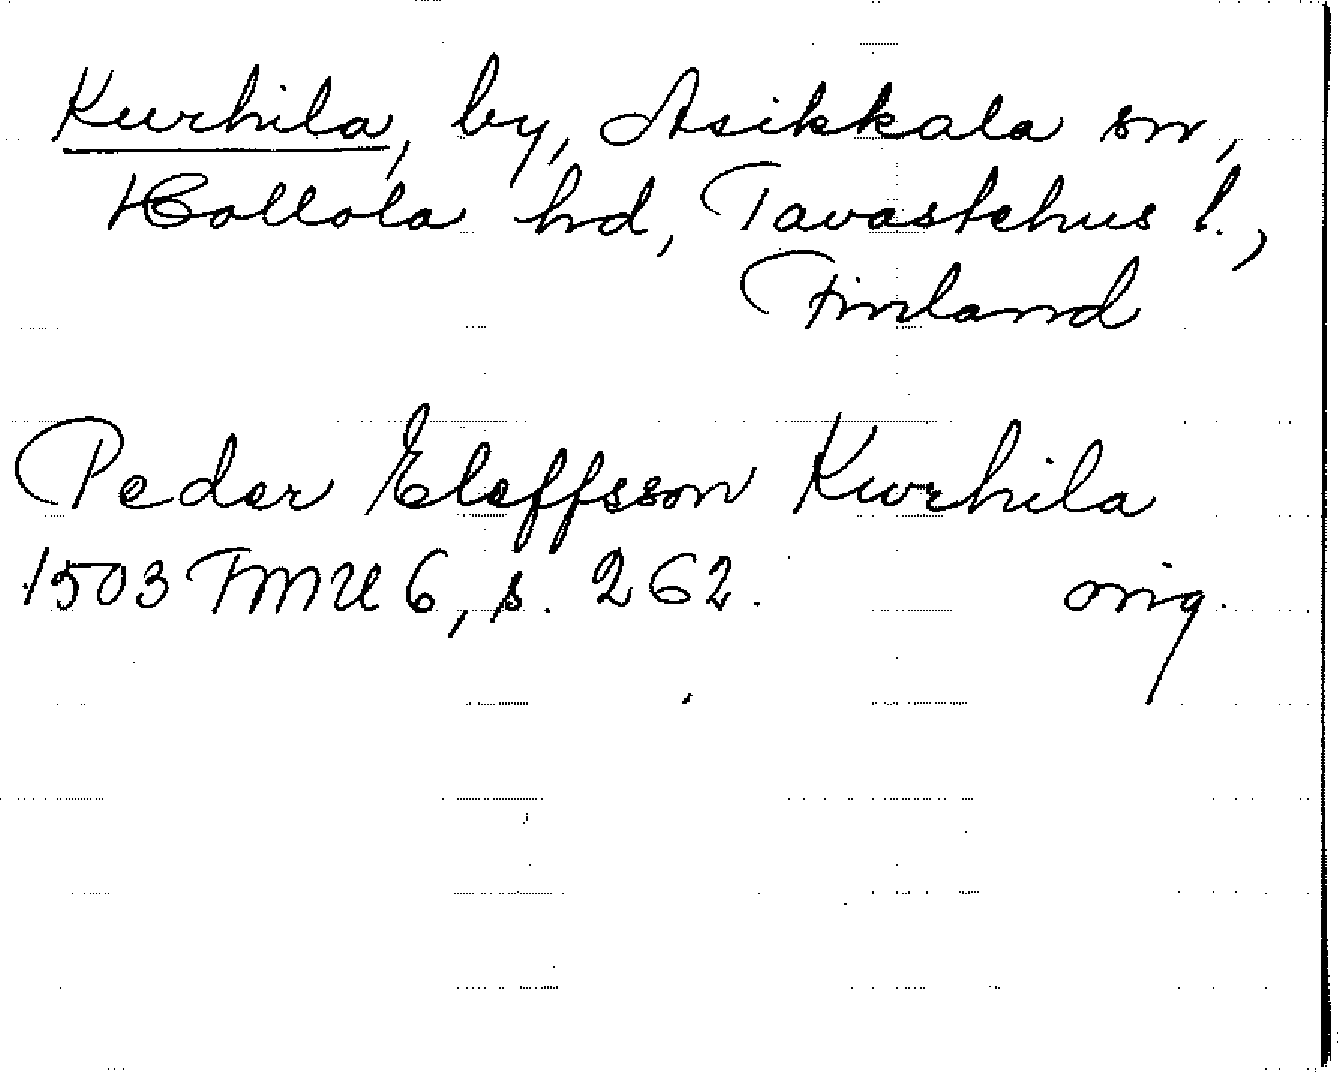 Kurhila, by, Asikkala sn,
Hollola hd, Tavastehus l.,
Finland
Peder Eleffsson Kurhila
1503 FMU 6, s. 262. orig.